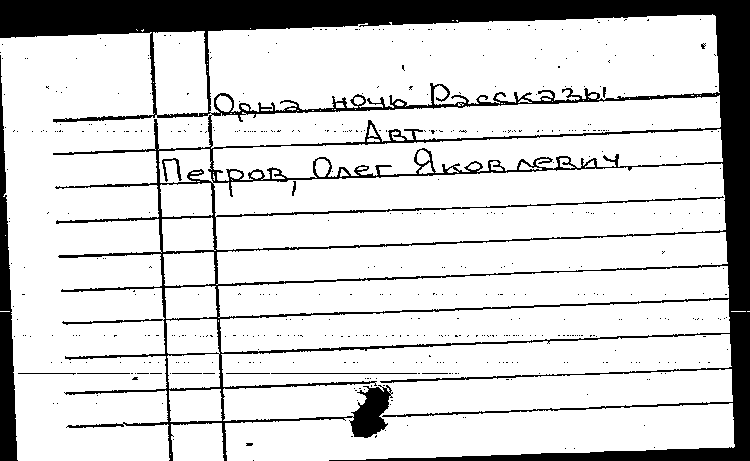 Одна ночь Рассказы.
Авт.:
Петров, Олег Яковлевич.